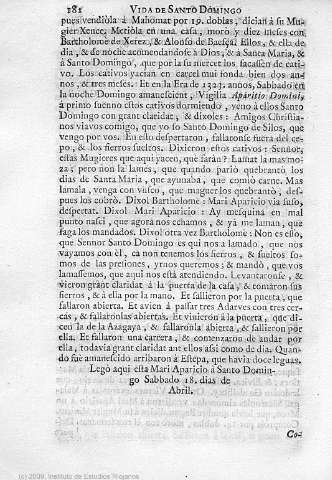 181 VIDA DE SANTO DOMINGO
pues vendiòla à Mahomat por 19. doblas, dician à su Mu-
gier Xence. Metiòla en una casa, moro y diez meses con
Bartholome de Xerez, & Alonso de Baeça. Ellos, & ella de
dia, & de noche acomendandose à Dios; & à Sancta Maria, &
à Santo Domingo, que por la su merced los sacasse de cati-
vo. Los cativos yacian en carcel mui fonda bien dos an-
nos, & tres meses. Et en la Era de 1323. annos, Sabbado en
la noche Domingo amanescient, Vigilia Aparitio Domini,
à primo suenno estos cativos dormiendo, veno à ellos Santo
Domingo con grant claridat, & dixoles: Amigos Christia-
nos viavos comigo, que yo so Santo Domingo de Silos, que
vengo por vos. En ello despertaron, fallaronse fuera del ce-
po, & los fierros sueltos. Dixieron estos cativos: Sennor,
estas Mugieres que aqui yacen, que faràn? Lamat la mas mo-
za; pero non la lames, que quando pariò quebrantò los
dias de Santa Maria, que ayunaba, que comiò carne. Mas
lamala, venga con vusco, que maguer los quebrantò, des-
pues los cobrò. Dixol Bartholome: Mari Aparicio via suso,
despertat. Dixol Mari Aparicio: Ay mesquina en mal
punto nasci, que agora nos echamos, & yà me laman, que
faga los mandados. Dixol otra vez Bartholome: Non es esso,
que Sennor Santo Domingo es qui nos a lamado, que nos
vayamos con el, ca non tenemos los fierros, & sueltos so-
mos de las presiones, yrnos queremos; & mandò, que vos
lamassemos, que aqui nos està atendiendo. Levantaronse, &
vieron grant claridat à la puerta de la casa, & tomaron sus
fierros, & à ella por la mano. Et sallieron por la puerta, que
fallaron abierta. Et avien à passar tres Adarves con tres cer-
cas, & fallaronlas abiertas. Et vinieron à la puerta, que di-
cen la de la Azagaya, & fallaronla abierta, & sallieron por
ella. Et fallaron una carrera, & comenzaron de andar por
ella, todavia grant claridat ant ellos assi como de dia. Quan-
do fue amanescido arribaron à Estepa, que havia doce leguas.
Legò aqui esta Mari Aparicio à Santo Domin-
go Sabbado 18. dias de
Abril.
Co-
(c) 2009, Instituto de Estudios Riojanos